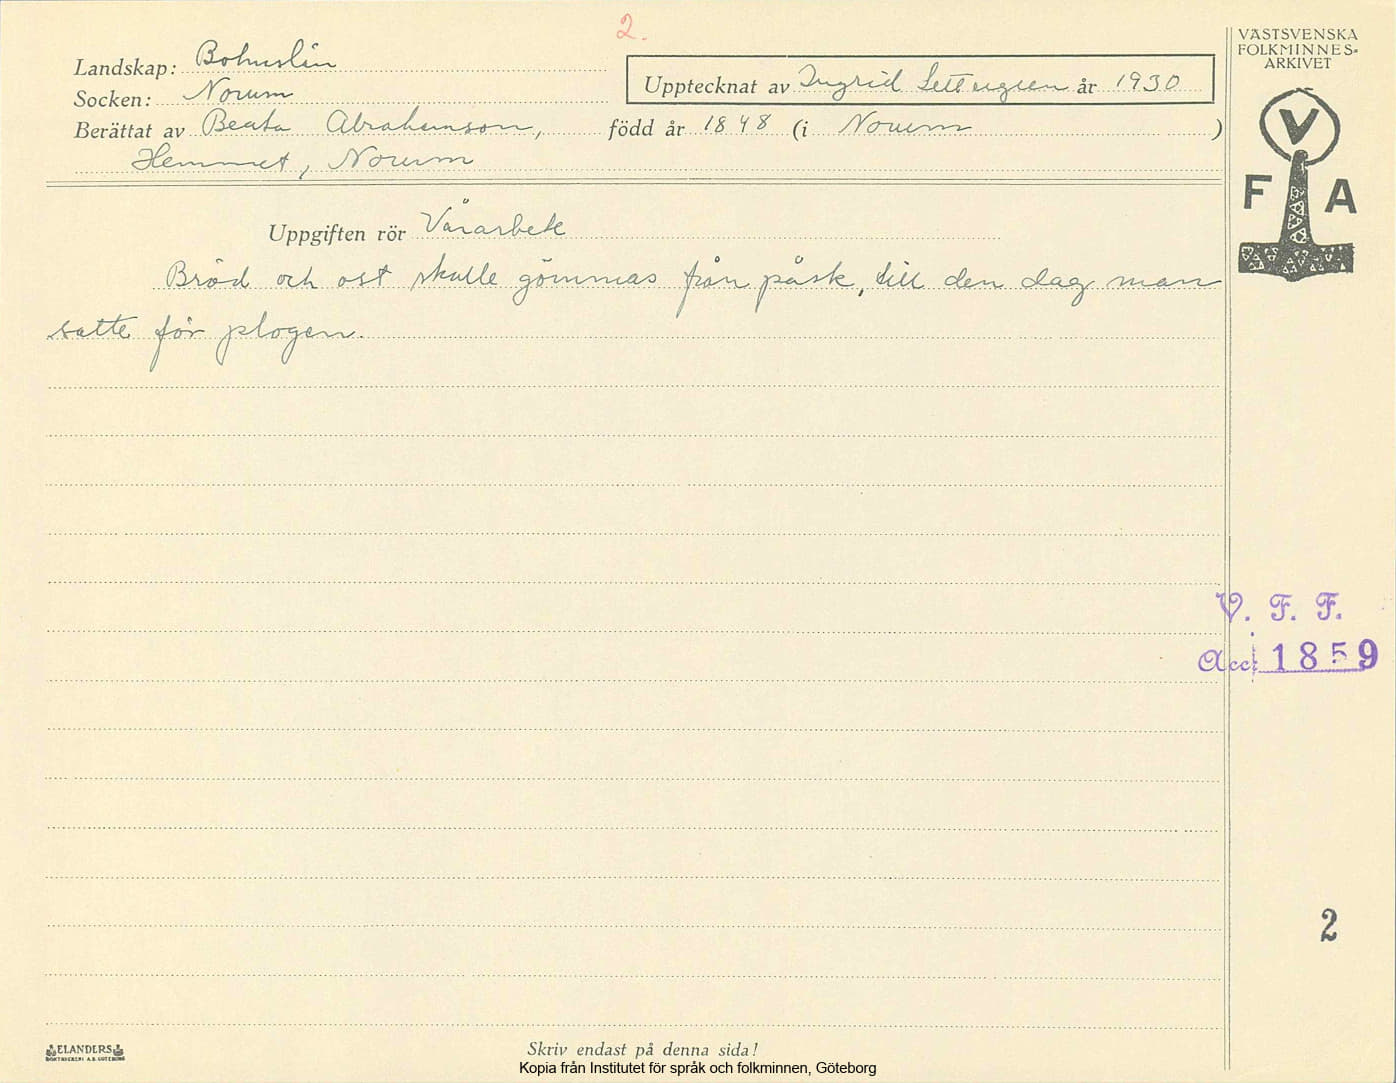 2.
VÄSTSVENSKA
FOLKMINNES-
ARKIVET
Landskap: Bohuslän
Upptecknat av Ingrid Settergren år 1930
Socken: Norum
Berättat av Beata Abrahamson, född år 1848 (i Norum )
Hemmet, Norum
V
F A
Uppgiften rör Vårarbete
Bröd och ost skulle gömmas från påsk, till den dag man
satte för plogen.
V. F. F.
Acc: 1859
2
ELANDERS
BOKTRYCKERI A.B. GÖTEBORG
Skriv endast på denna sida!
Kopia från Institutet för språk och folkminnen, Göteborg